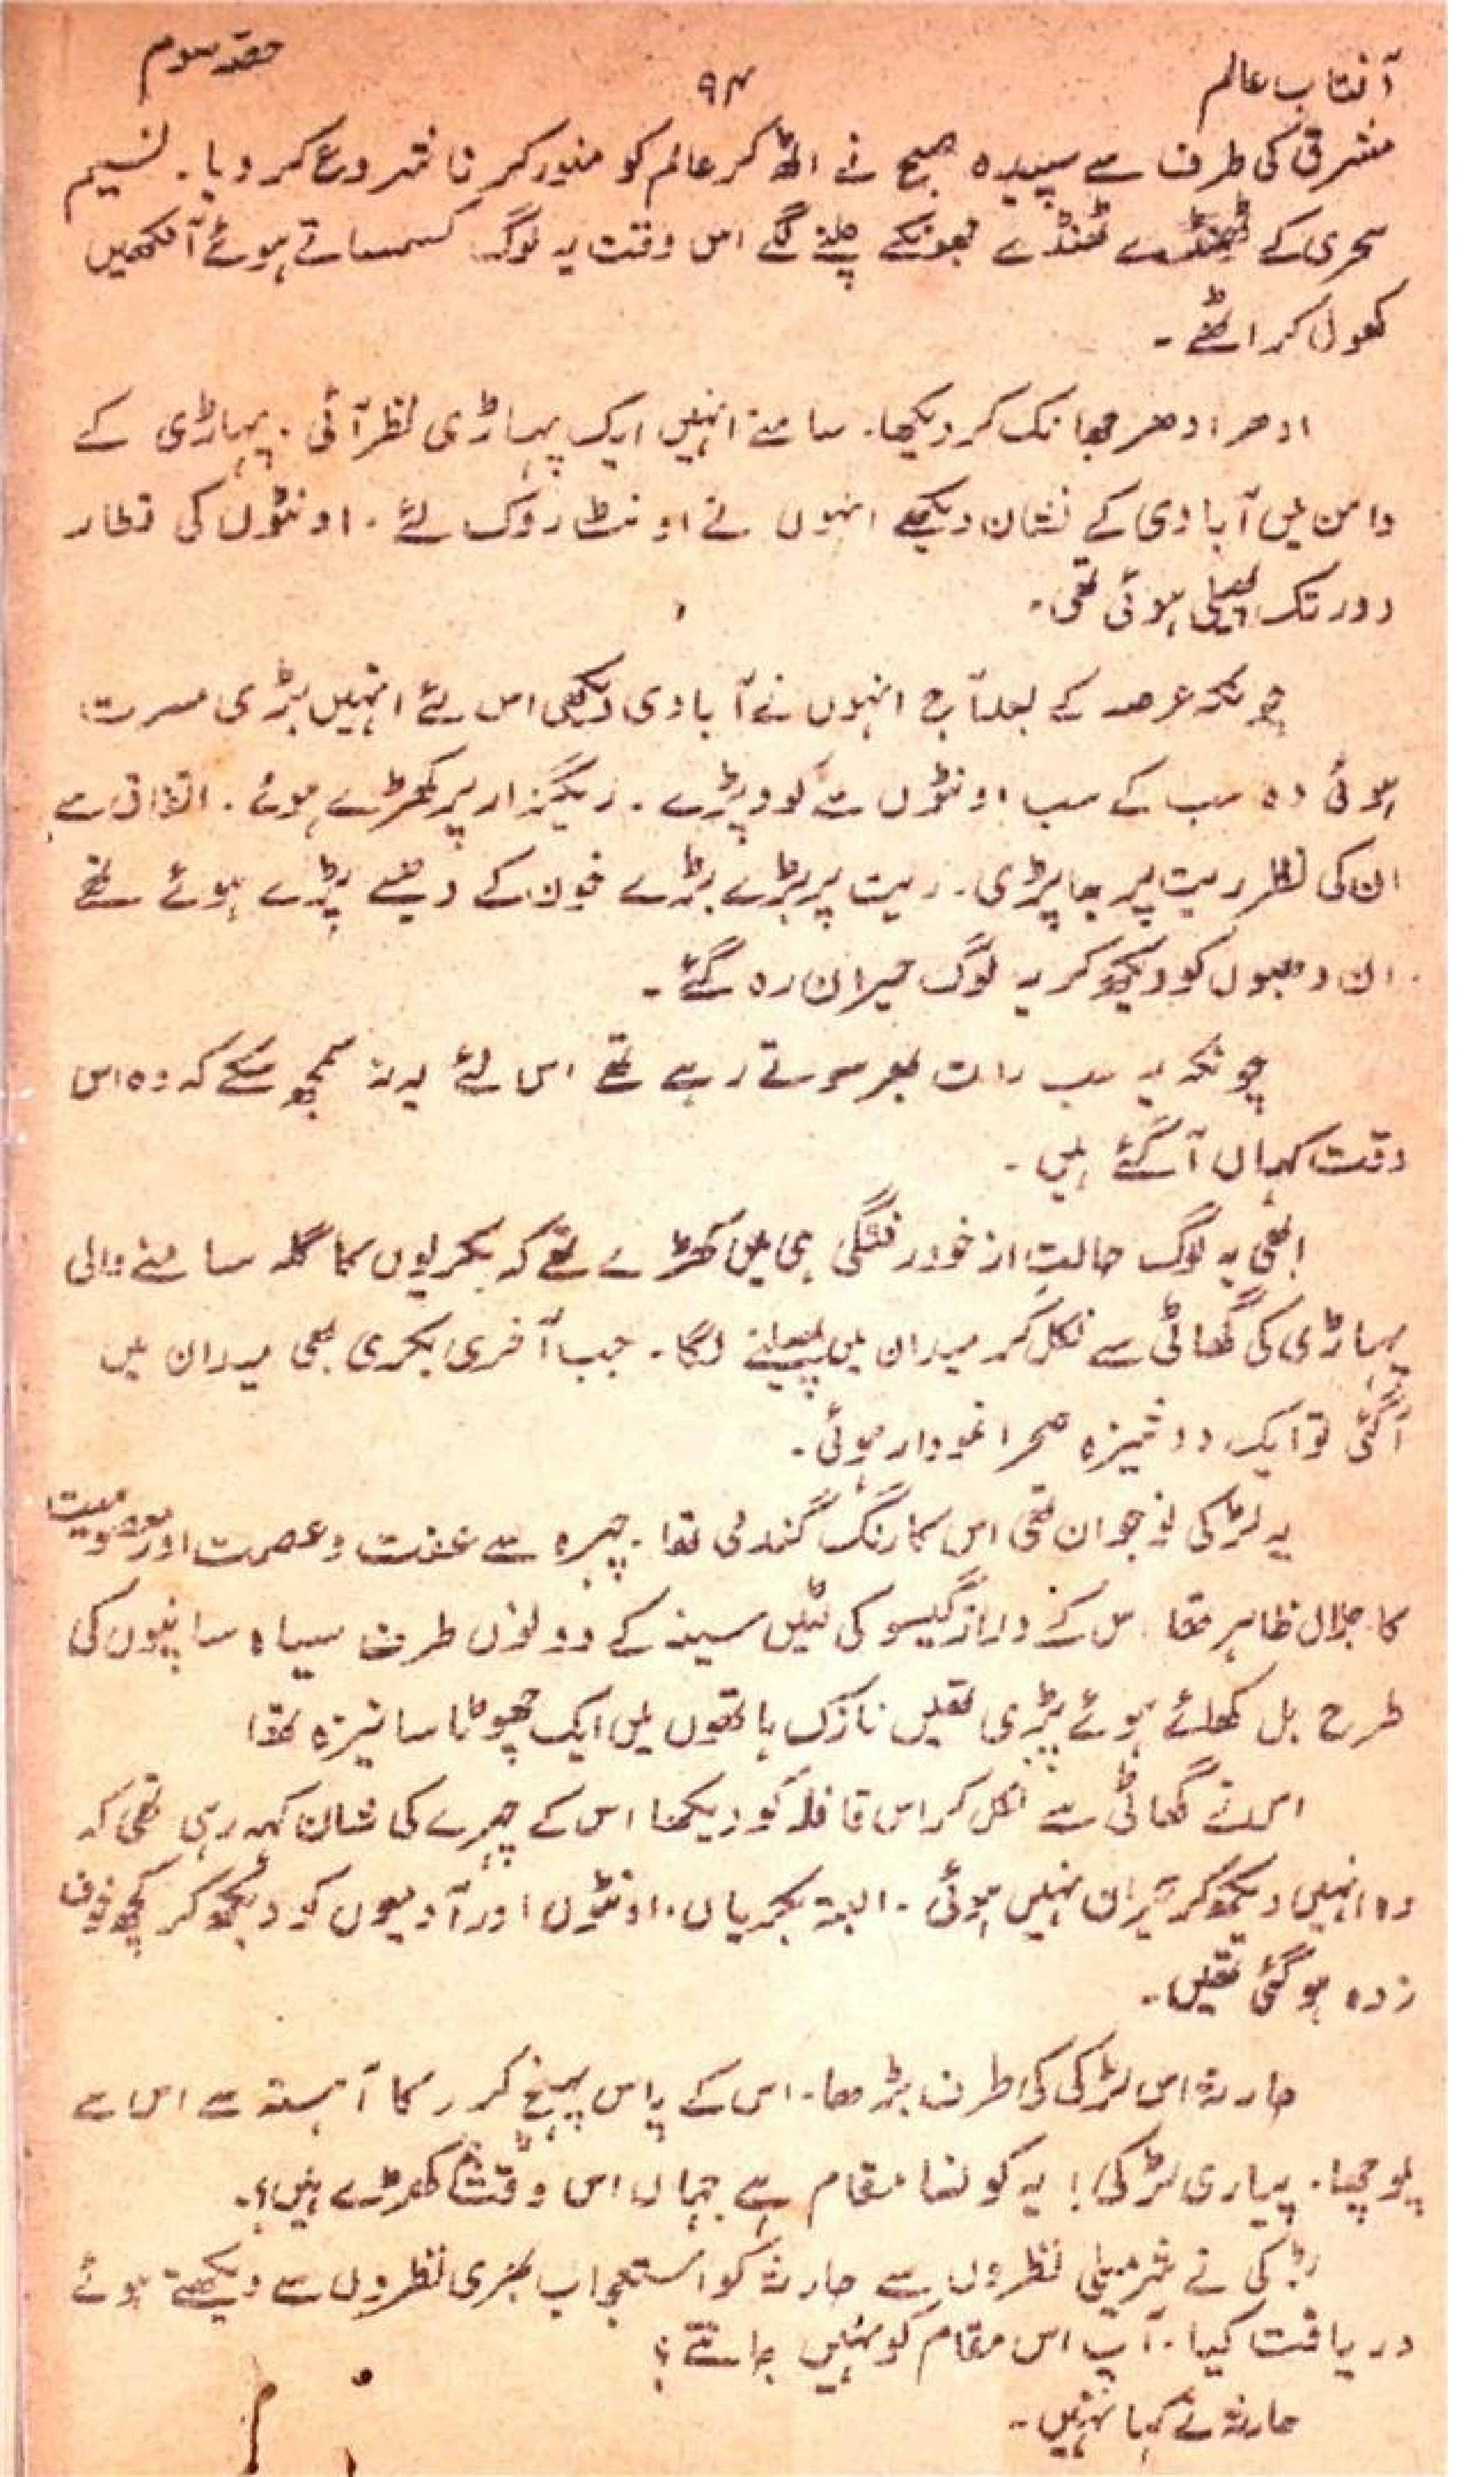 آفتاب عالم ۹۴ حصہ سوم
مشرق کی طرف سے سپیدہ صبح نے اٹھ کر عالم کو منور کرنا شروع کر دیا۔ نسیم
سحری کے ٹھنڈے ٹھنڈے جھونکے چلنے لگے اس وقت یہ لوگ کسمساتے ہوئے آنکھیں
کھول کر اٹھے۔
ادھر ادھر جھانک کر دیکھا۔ سامنے انہیں ایک پہاڑی نظر آئی۔ پہاڑی کے
دامن میں آبادی کے نشان دیکھے انہوں نے اونٹ روک لئے۔ اونٹوں کی قطار
دور تک پھیلی ہوئی تھی۔
چونکہ عرصہ کے بعد آج انہوں نے آبادی دیکھی اس لئے انہیں بڑی مسرت
ہوئی وہ سب کے سب اونٹوں سے کود پڑے۔ ریگزار پر کھڑے ہوئے۔ اتفاق سے
ان کی نظر ریت پر جا پڑی۔ ریت پر بڑے بڑے خون کے دھبے پڑے ہوئے تھے
ان دھبوں کو دیکھ کر یہ لوگ حیران رہ گئے۔
چونکہ یہ سب رات بھر سوتے رہے تھے اس لئے یہ نہ سمجھ سکے کہ وہ اس
وقت کہاں آ گئے ہیں۔
ابھی یہ لوگ حالتِ از خود رفتگی ہی میں کھڑے تھے کہ بکریوں کا گلہ سامنے والی
پہاڑی کی گھاٹی سے نکل کر میدان میں پھیلنے لگا۔ جب آخری بکری بھی میدان میں
آ گئی تو ایک دوشیزہ صحرا نمودار ہوئی۔
یہ لڑکی نوجوان تھی اس کا رنگ گندمی تھا۔ چہرہ سے عفت و عصمت اور معصومیت
کا جلال ظاہر تھا۔ اس کے دراز گیسو کی لٹیں سینہ کے دونوں طرف سیاہ سانپوں کی
طرح بل کھائے ہوئے پڑی تھیں نازک ہاتھوں میں ایک چھوٹا سا نیزہ تھا
اس نے گھاٹی سے نکل کر اس قافلہ کو دیکھا اس کے چہرے کی شان کہہ رہی تھی کہ
وہ انہیں دیکھ کر حیران نہیں ہوئی۔ البتہ بکریاں، اونٹوں اور آدمیوں کو دیکھ کر کچھ خوف
زدہ ہو گئی تھیں۔
حارثہ اس لڑکی کی طرف بڑھا۔ اس کے پاس پہنچ کر رکا آہستہ سے اس سے
پوچھا۔ پیاری لڑکی! یہ کونسا مقام ہے جہاں اس وقت ہم کھڑے ہیں؟۔
لڑکی نے شرمیلی نظروں سے حارثہ کو استعجاب بھری نظروں سے دیکھتے ہوئے
دریافت کیا۔ آپ اس مقام کو نہیں جانتے؟
حارثہ نے کہا نہیں۔